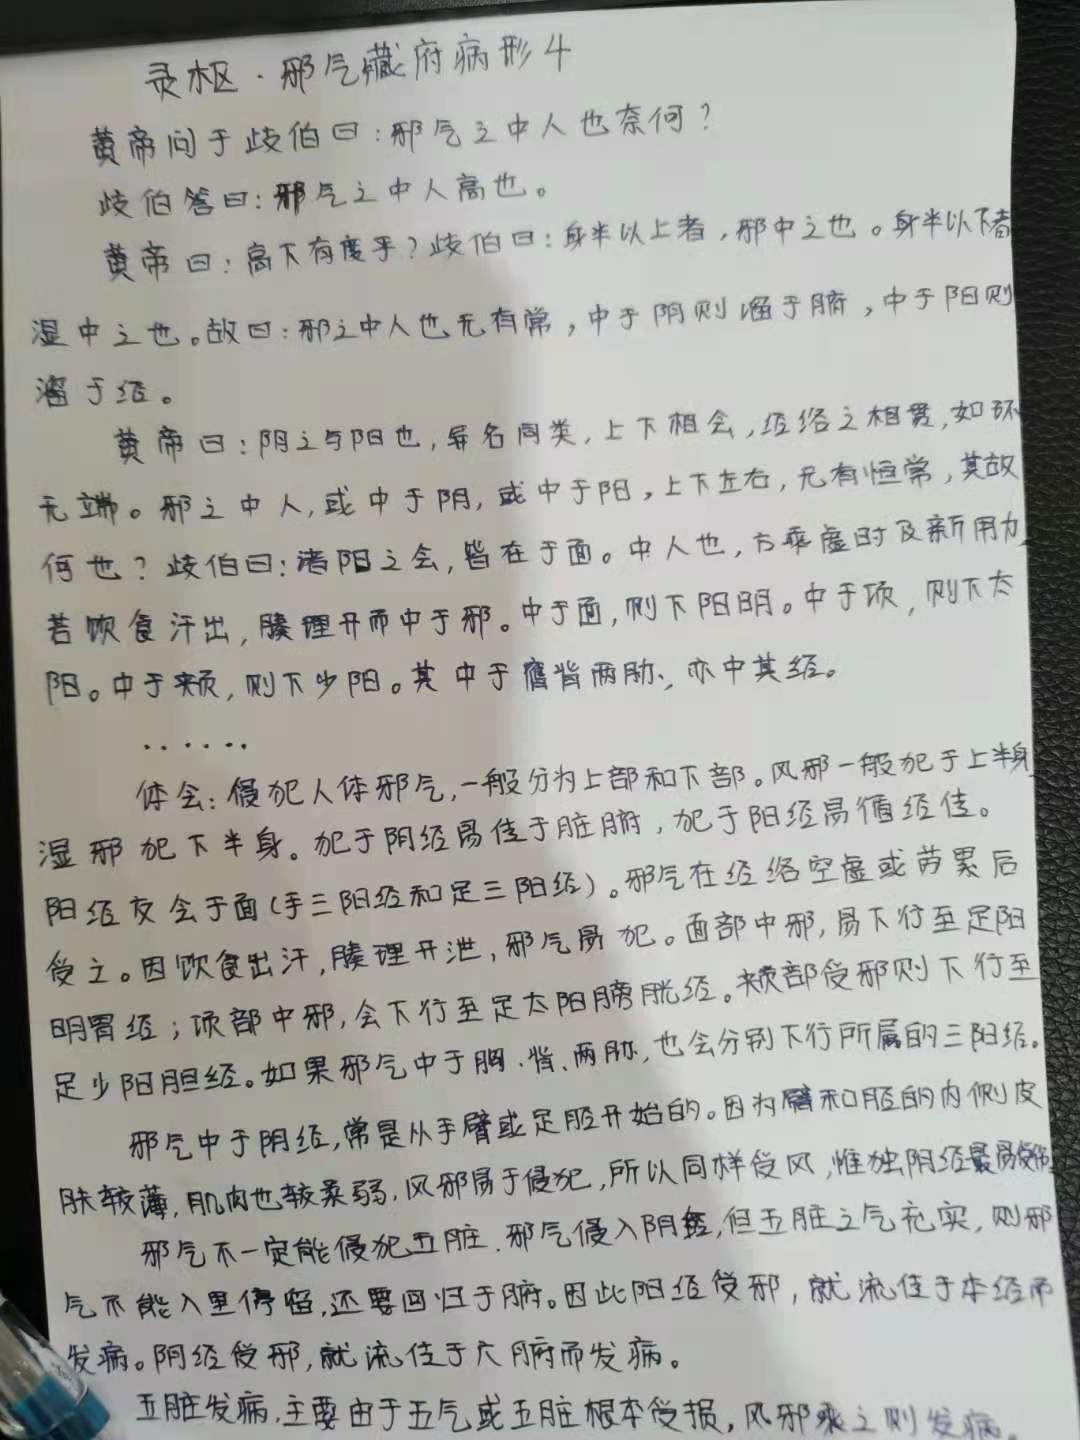 灵枢·邪气藏府病形4
黄帝问于歧伯曰：邪气之中人也奈何？
歧伯答曰：邪气之中人高也。
黄帝曰：高下有度乎？歧伯曰：身半以上者，邪中之也。身半以下者
湿中之也。故曰：邪之中人也无有常，中于阴则溜于腑，中于阳则
溜于经。
黄帝曰：阴之与阳也，异名同类，上下相会，经络之相贯，如环
无端。邪之中人，或中于阴，或中于阳，上下左右，无有恒常，其故
何也？歧伯曰：诸阳之会，皆在于面。中人也，方乘虚时及新用力，
若饮食汗出，腠理开而中于邪。中于面，则下阳明。中于项，则下太
阳。中于颊，则下少阳。其中于膺背两胁，亦中其经。
······
体会：侵犯人体邪气，一般分为上部和下部。风邪一般犯于上半身，
湿邪犯下半身。犯于阴经易住于脏腑，犯于阳经易循经住。
阳经交会于面（手三阳经和足三阳经）。邪气在经络空虚或劳累后
受之。因饮食出汗，腠理开泄，邪气易犯。面部中邪，易下行至足阳
明胃经；项部中邪，会下行至足太阳膀胱经。颊部受邪则下行至
足少阳胆经。如果邪气中于胸、背、两胁，也会分别下行所属的三阳经。
邪气中于阴经，常是从手臂或足胫开始的。因为臂和胫的内侧皮
肤较薄，肌肉也较柔弱，风邪易于侵犯，所以同样受风，惟独阴经最易受伤。
邪气不一定能侵犯五脏。邪气侵入阴经，但五脏之气充实，则邪
气不能入里停留，还要回归于腑。因此阳经受邪，就流住于本经而
发病。阴经受邪，就流住于六腑而发病。
五脏发病，主要由于五气或五脏根本受损，风邪乘之则发病。